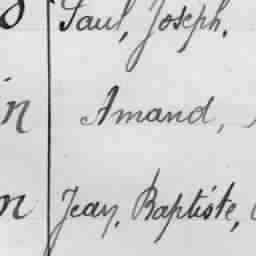 Paul, Joseph.
in Amand,
n Jean, Baptiste,